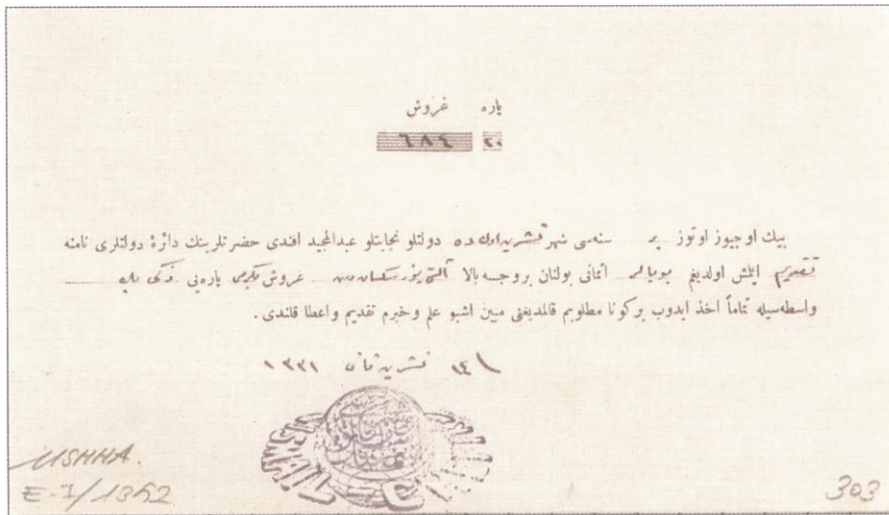 پاره غروش
٢٠ ٦٨٤
بيك اوچيوز اوتوز بر سنه‌سى شهر تشرين اول ده دولتلو نجابتلو عبدالمجيد افندى حضرتلرينك دائرۀ دولتلرى نامنه
تقديم ايلمش اولديغم بويالر اثمانى بولنان بروجه بالا آلتى يوز سكسان درت غروش يكرمى پاره‌يى بك
واسطه‌سيله تماماً اخذ ايدوب بر كونا مطلوبم قالمديغنى مبين اشبو علم و خبرم تقديم واعطا قلندى.
١٤ تشرين ثانى ١٣٣١
MSHHA.
E-I/1362
303